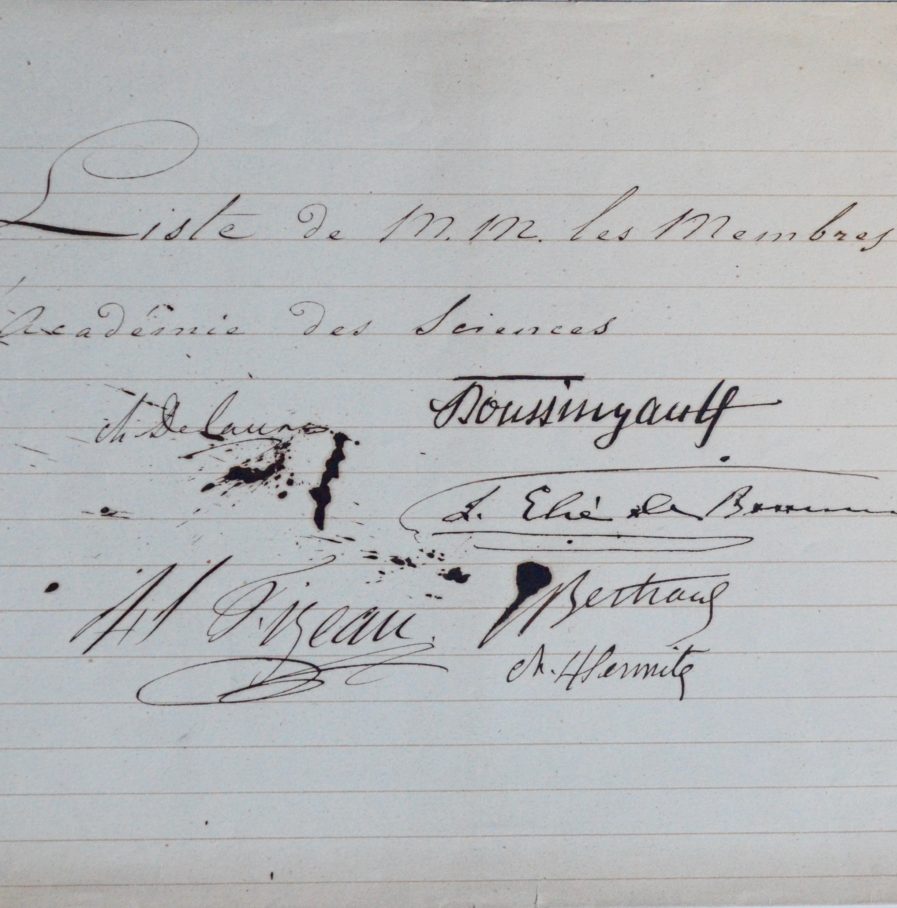 Liste de M.M. les Membres
Académie des Sciences
Ch. Delauna
Boussingault
L. Elie de Beaum
H Fizeau
J Bertrand
Ch. Hermite